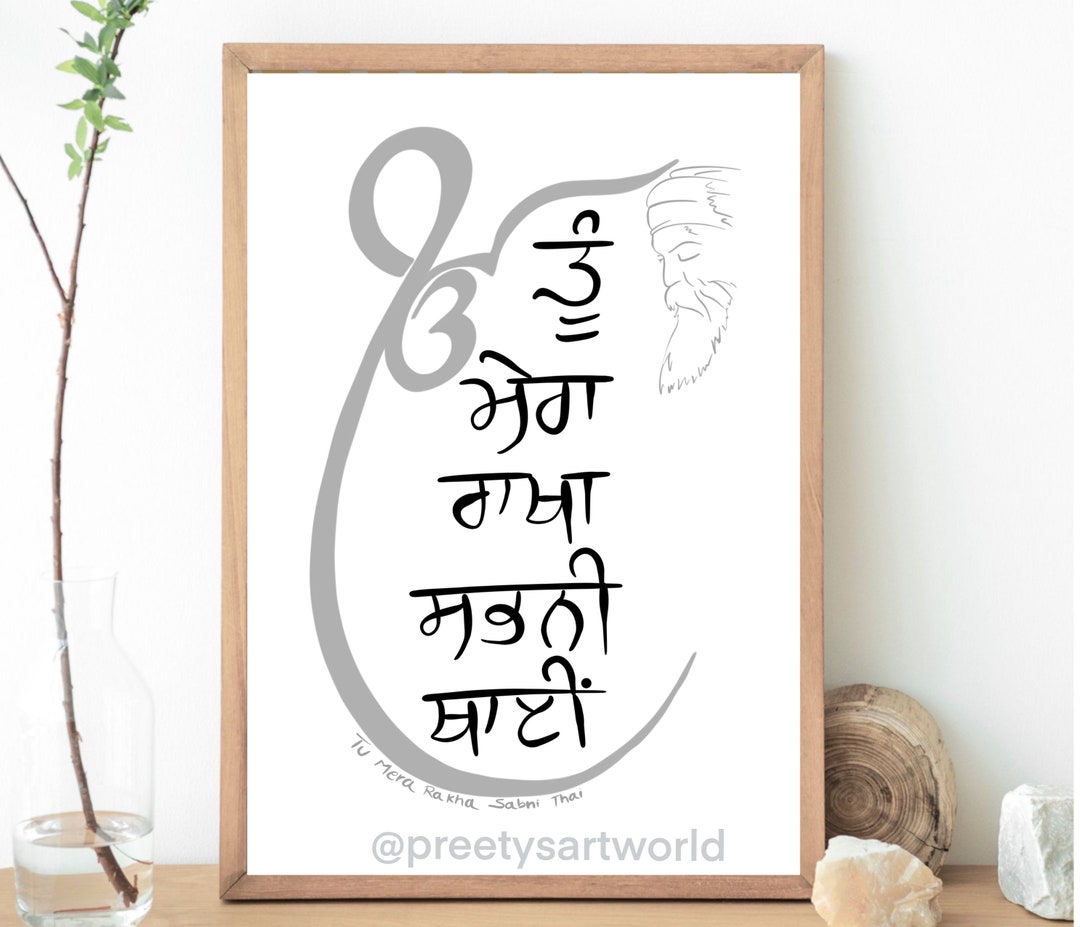 ੴ
ਤੂੰ
ਮੇਰਾ
ਰਾਖਾ
ਸਭਨੀ
ਥਾਈਂ
Tu Mera Rakha Sabni Thai
@preetysartworld